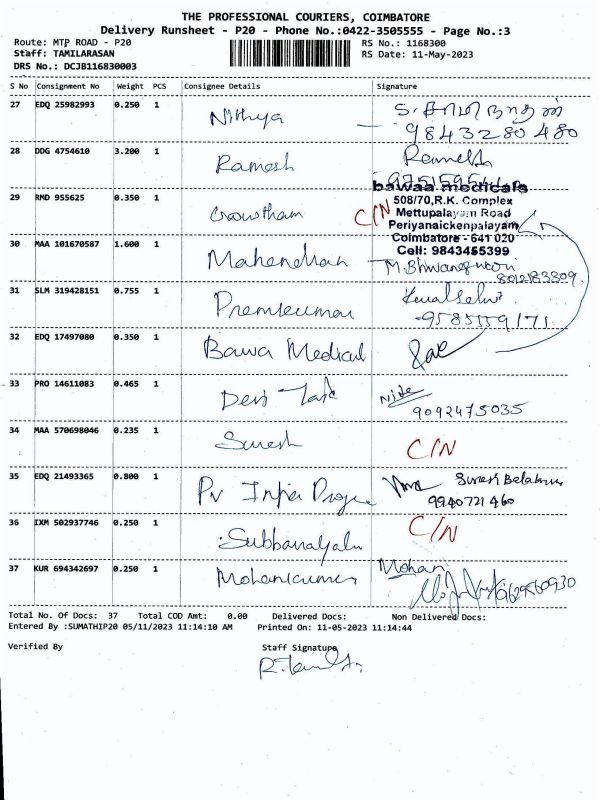 THE PROFESSIONAL COURIERS, COIMBATORE
Delivery Runsheet - P20 - Phone No.:0422-3505555 - Page No.:3
Route: MTP ROAD - P20 RS No.: 1168300
Staff: TAMILARASAN RS Date: 11-May-2023
DRS No.: DCJB116830003
S No Consignment No Weight PCS Consignee Details Signature
27 EDQ 25982993 0.250 1 Nithya S. சாமிநாதன்
9843280480
28 DDG 4754610 3.200 1 Ramesh Ramesh
bawaa medicals
29 RMD 955625 0.350 1 Gowtham C/N 508/70,R.K. Complex
Mettupalayam Road
Periyanaickenpalayam
Coimbatore - 641 020
Cell: 9843455399
30 MAA 101670587 1.600 1 Mahendran
8012183309
31 SLM 319428151 0.755 1 Premkumar
9585159171
32 EDQ 17497080 0.350 1 Bawa Medical
33 PRO 14611083 0.465 1 Devi
9092475035
34 MAA 570698046 0.235 1 Suresh C/N
35 EDQ 21493365 0.800 1 Pv Infra
9940721460
36 IXM 502937746 0.250 1 C/N
37 KUR 694342697 0.250 1 Mohankumar Mohan
Total No. Of Docs: 37 Total COD Amt: 0.00 Delivered Docs: Non Delivered Docs:
Entered By :SUMATHIP20 05/11/2023 11:14:10 AM Printed On: 11-05-2023 11:14:44
Verified By Staff Signature